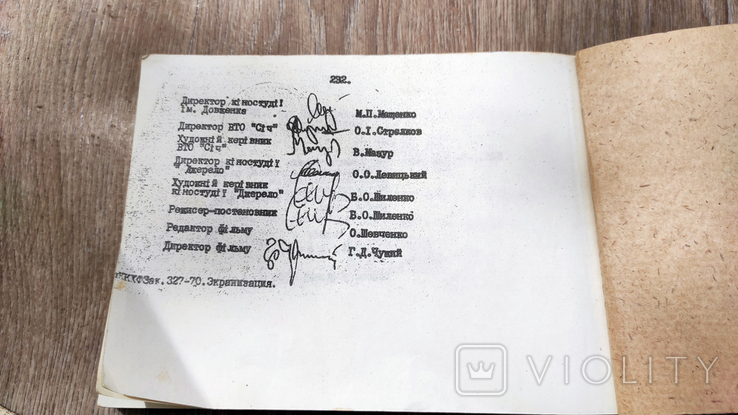 232.
Директор кіностудії
ім. Довженка М.П.Мащенко
Директор ВТО "Січ" О.І.Стрелков
Художній керівник
ВТО "Січ" В.Мазур
Директор кіностудії
"Джерело" О.О.Левицький
Художній керівник
кіностудії "Джерело" Б.О.Шиленко
Режисер-постановник Б.О.Шиленко
Редактор фільму О.Шевченко
Директор фільму Г.Д.Чужий
Зак.327-70.Экранизация.
VIOLITY